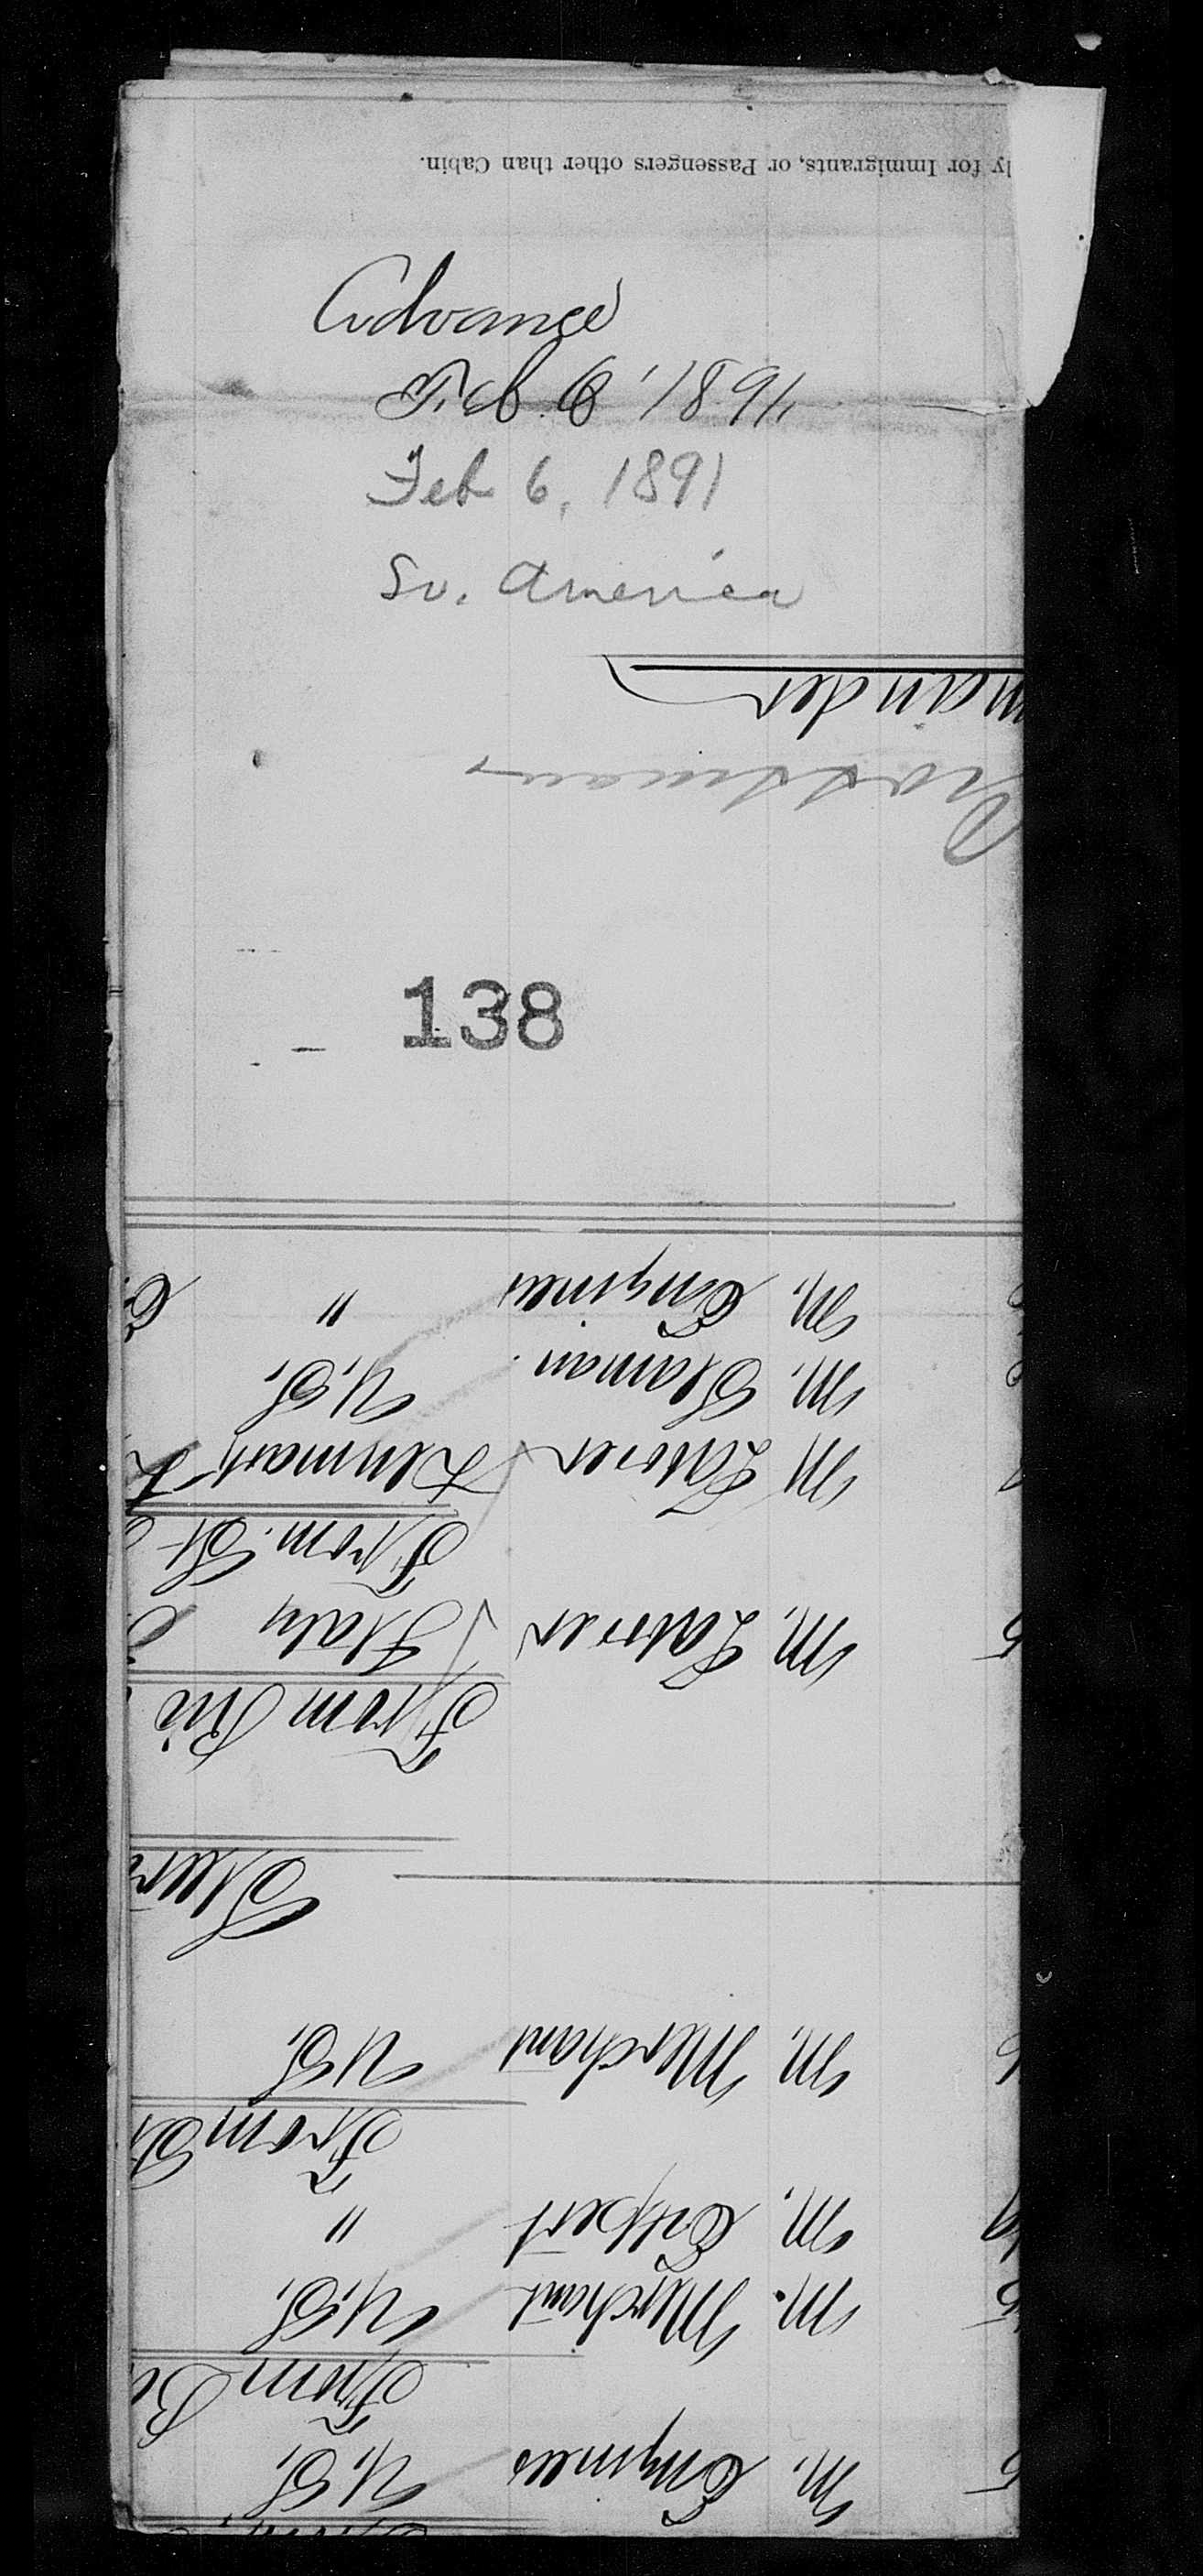 ly for Immigrants, or Passengers other than Cabin.
Advance
Feb. 6, 1891,
Feb 6, 1891
So. America
mander
138
M. Engineer "
M. Seaman. U.S.
M Laborer Denmark
From St
M. Laborer Italy
From Rio
Steer
M. Merchant U.S.
From
M. Expert "
M. Merchant U.S.
From Ba
M. Engineer U.S.